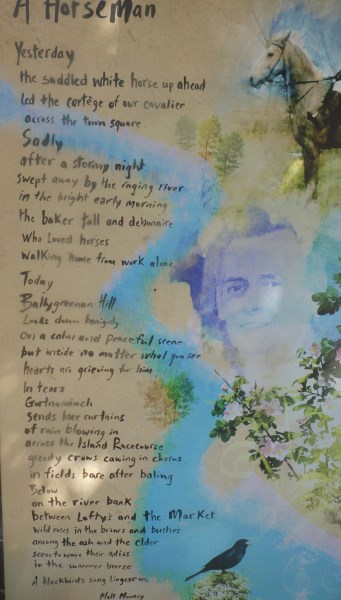 A Horseman
Yesterday
the saddled white horse up ahead
led the cortège of our cavalier
across the town square
Sadly
after a stormy night
swept away by the raging river
in the bright early morning
the baker tall and debonaire
who loved horses
walking home from work alone
Today
Ballygreenan Hill
Looks down benignly
On a calm and peaceful scene
but inside no matter what you see
hearts are grieving for him
In tears
Gortnaminch
sends lace curtains
of rain blowing in
across the Island Racecourse
greedy crows cawing in chorus
in fields bare after baling
Below
on the river bank
between Lofty's and the Market
wild roses in the briars and bushes
among the ash and the elder
seem to wave their adios
in the summer breeze
A blackbird's song lingers on